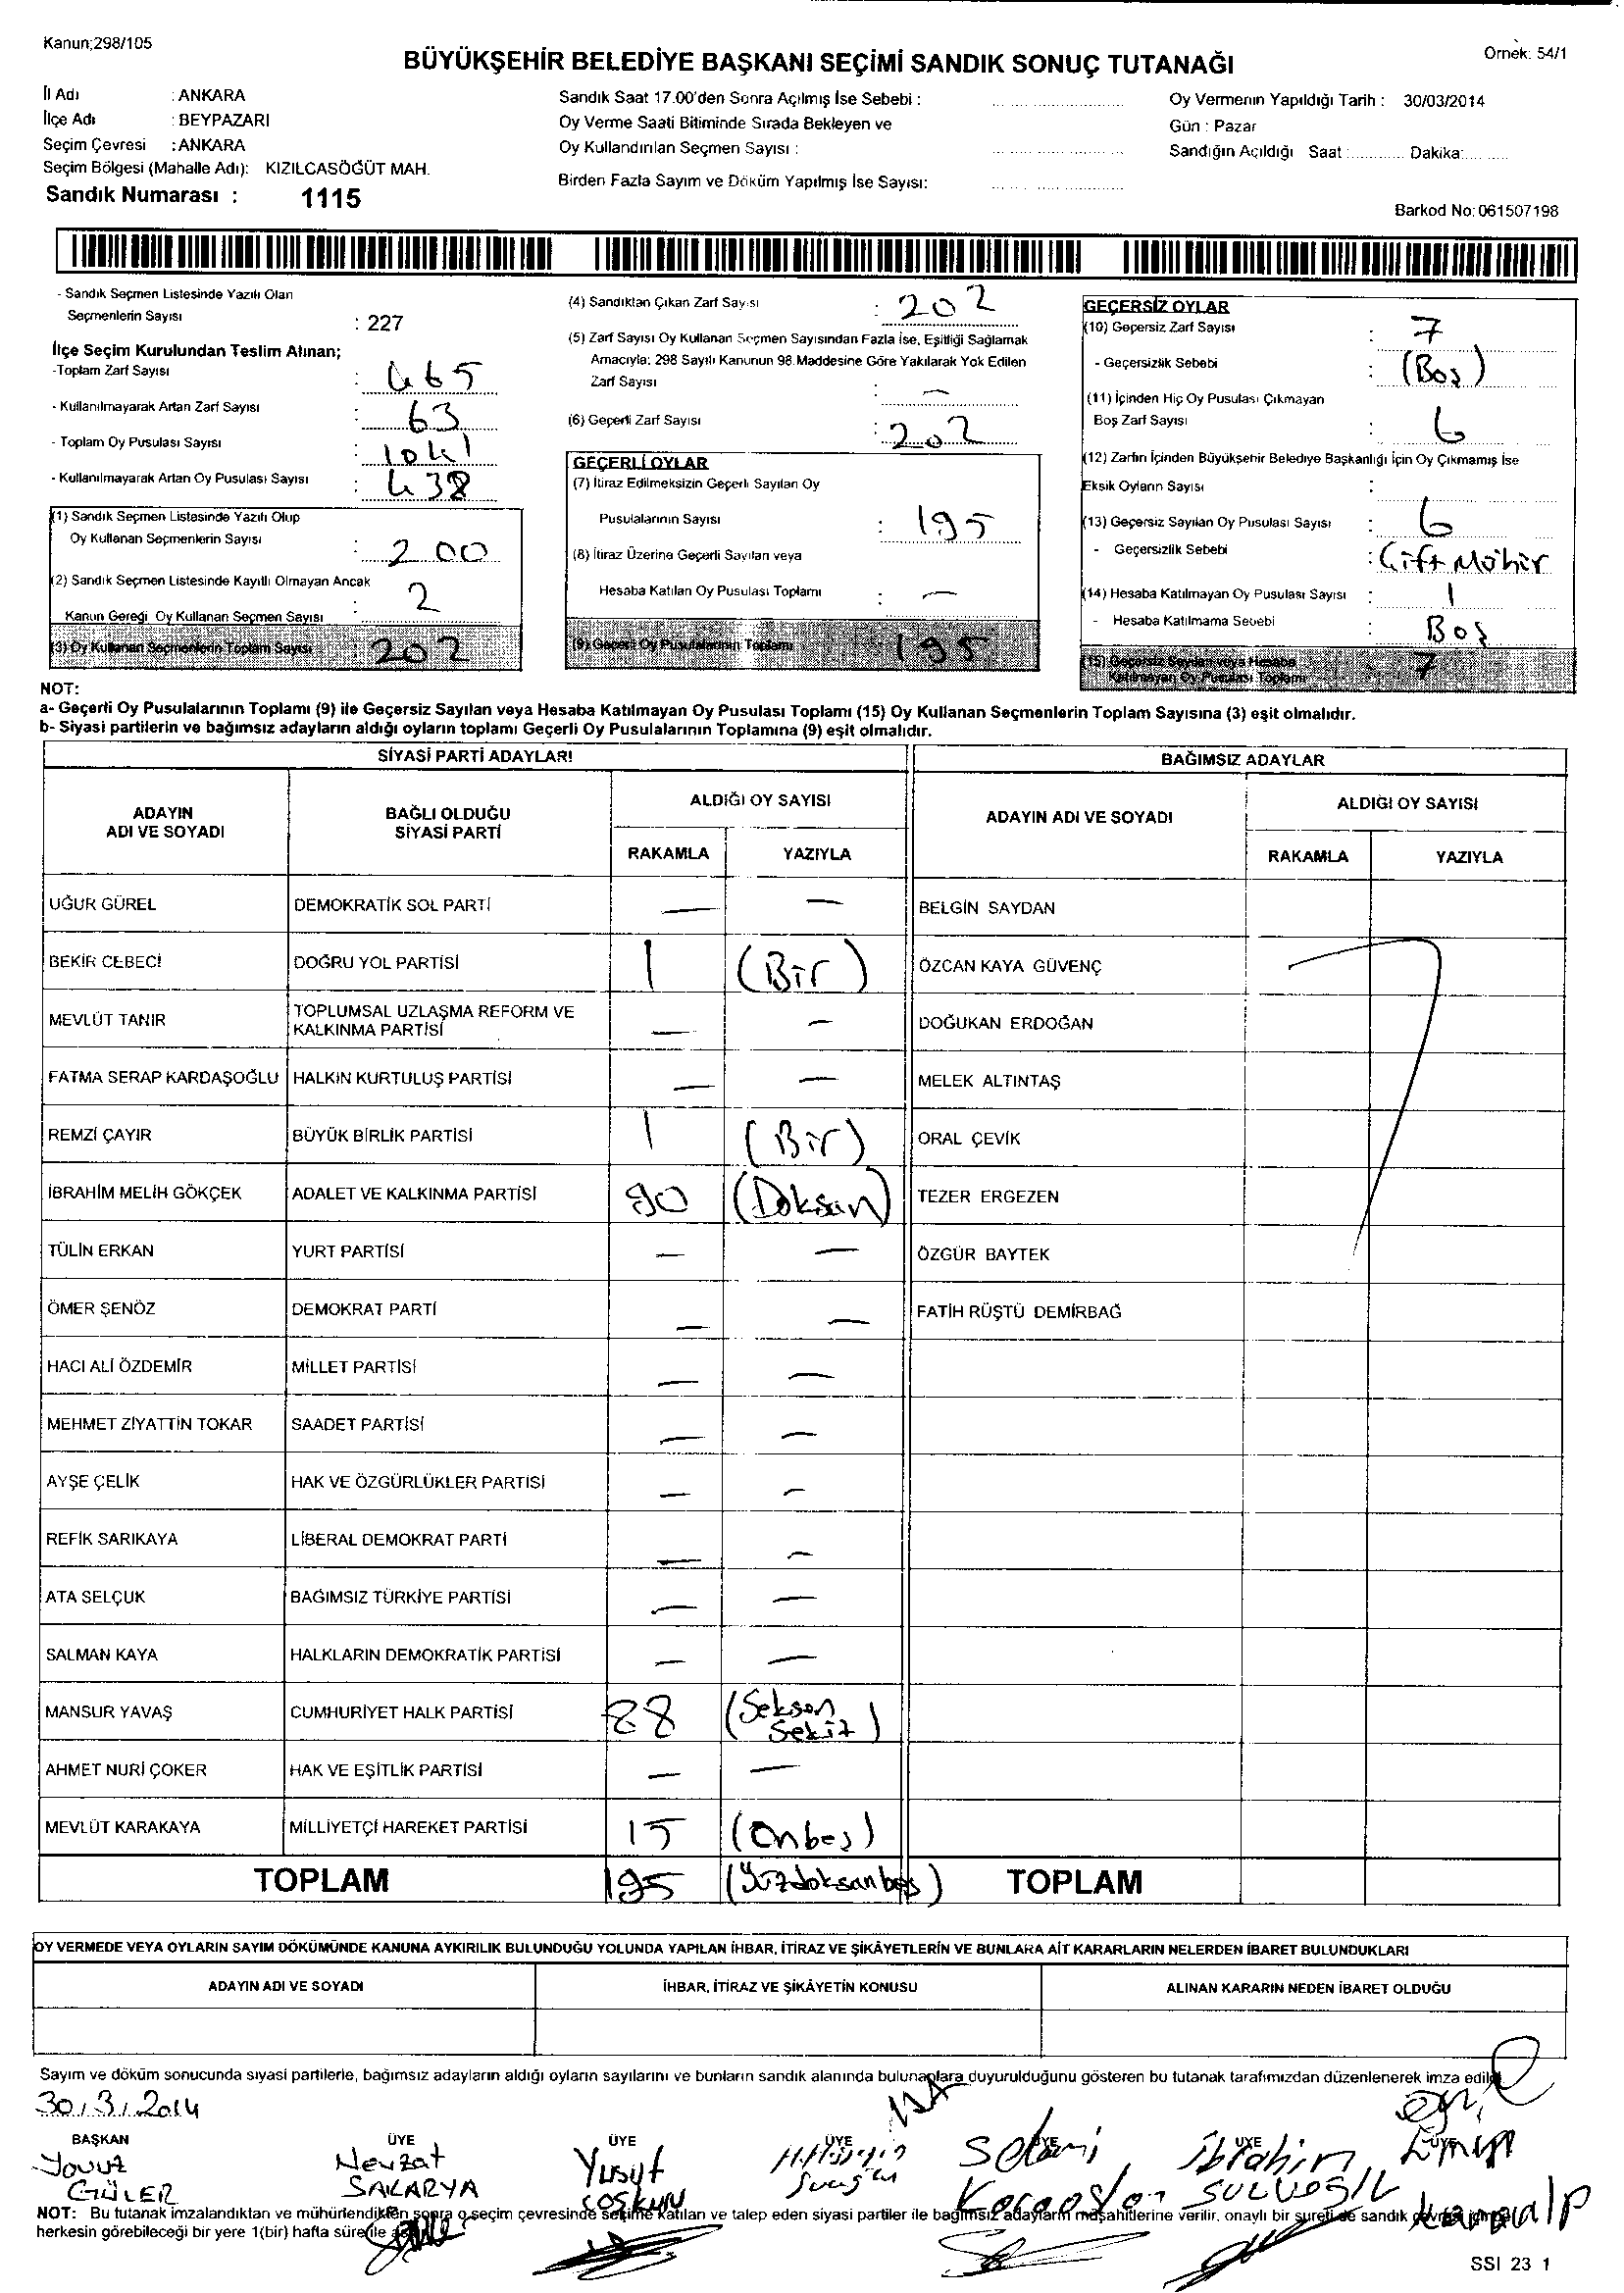 Kanun;298/105
Örnek: 54/1
BÜYÜKŞEHİR BELEDİYE BAŞKANI SEÇİMİ SANDIK SONUÇ TUTANAĞI
İl Adı : ANKARA
İlçe Adı : BEYPAZARI
Seçim Çevresi : ANKARA
Seçim Bölgesi (Mahalle Adı): KIZILCASÖĞÜT MAH.
Sandık Numarası : 1115
Sandık Saat 17.00'den Sonra Açılmış İse Sebebi :
Oy Verme Saati Bitiminde Sırada Bekleyen ve
Oy Kullandırılan Seçmen Sayısı :
Birden Fazla Sayım ve Döküm Yapılmış İse Sayısı:
Oy Vermenin Yapıldığı Tarih : 30/03/2014
Gün : Pazar
Sandığın Açıldığı Saat :........... Dakika:...........
Barkod No: 061507198
- Sandık Seçmen Listesinde Yazılı Olan
Seçmenlerin Sayısı : 227
İlçe Seçim Kurulundan Teslim Alınan;
-Toplam Zarf Sayısı : 465
- Kullanılmayarak Artan Zarf Sayısı : 63
- Toplam Oy Pusulası Sayısı : 1041
- Kullanılmayarak Artan Oy Pusulası Sayısı : 438
(1) Sandık Seçmen Listesinde Yazılı Olup
Oy Kullanan Seçmenlerin Sayısı : 200
(2) Sandık Seçmen Listesinde Kayıtlı Olmayan Ancak
Kanun Gereği Oy Kullanan Seçmen Sayısı : 2
(3) Oy Kullanan Seçmenlerin Toplam Sayısı : 202
(4) Sandıktan Çıkan Zarf Sayısı : 202
(5) Zarf Sayısı Oy Kullanan Seçmen Sayısından Fazla İse, Eşitliği Sağlamak
Amacıyla: 298 Sayılı Kanunun 98.Maddesine Göre Yakılarak Yok Edilen
Zarf Sayısı : —
(6) Geçerli Zarf Sayısı : 202
GEÇERLİ OYLAR
(7) İtiraz Edilmeksizin Geçerli Sayılan Oy
Pusulalarının Sayısı : 195
(8) İtiraz Üzerine Geçerli Sayılan veya
Hesaba Katılan Oy Pusulası Toplamı : —
(9) Geçerli Oy Pusulalarının Toplamı 195
GEÇERSİZ OYLAR
(10) Geçersiz Zarf Sayısı : 7
- Geçersizlik Sebebi : (Boş)
(11) İçinden Hiç Oy Pusulası Çıkmayan
Boş Zarf Sayısı : 6
(12) Zarfın İçinden Büyükşehir Belediye Başkanlığı İçin Oy Çıkmamış İse
Eksik Oyların Sayısı :
(13) Geçersiz Sayılan Oy Pusulası Sayısı : 6
- Geçersizlik Sebebi : Çift Mühür
(14) Hesaba Katılmayan Oy Pusulası Sayısı : 1
- Hesaba Katılmama Sebebi : Boş
(15) Geçersiz Sayılan veya Hesaba
Katılmayan Oy Pusulası Toplamı 7
NOT:
a- Geçerli Oy Pusulalarının Toplamı (9) ile Geçersiz Sayılan veya Hesaba Katılmayan Oy Pusulası Toplamı (15) Oy Kullanan Seçmenlerin Toplam Sayısına (3) eşit olmalıdır.
b- Siyasi partilerin ve bağımsız adayların aldığı oyların toplamı Geçerli Oy Pusulalarının Toplamına (9) eşit olmalıdır.
SİYASİ PARTİ ADAYLARI
ADAYIN ADI VE SOYADI BAĞLI OLDUĞU SİYASİ PARTİ ALDIĞI OY SAYISI
RAKAMLA YAZIYLA
UĞUR GÜREL DEMOKRATİK SOL PARTİ — —
BEKİR CEBECİ DOĞRU YOL PARTİSİ 1 (Bir)
MEVLÜT TANIR TOPLUMSAL UZLAŞMA REFORM VE KALKINMA PARTİSİ — —
FATMA SERAP KARDAŞOĞLU HALKIN KURTULUŞ PARTİSİ — —
REMZİ ÇAYIR BÜYÜK BİRLİK PARTİSİ 1 (Bir)
İBRAHİM MELİH GÖKÇEK ADALET VE KALKINMA PARTİSİ 90 (Doksan)
TÜLİN ERKAN YURT PARTİSİ — —
ÖMER ŞENÖZ DEMOKRAT PARTİ — —
HACI ALİ ÖZDEMİR MİLLET PARTİSİ — —
MEHMET ZİYATTİN TOKAR SAADET PARTİSİ — —
AYŞE ÇELİK HAK VE ÖZGÜRLÜKLER PARTİSİ — —
REFİK SARIKAYA LİBERAL DEMOKRAT PARTİ — —
ATA SELÇUK BAĞIMSIZ TÜRKİYE PARTİSİ — —
SALMAN KAYA HALKLARIN DEMOKRATİK PARTİSİ — —
MANSUR YAVAŞ CUMHURİYET HALK PARTİSİ 88 (Seksen Sekiz)
AHMET NURİ ÇOKER HAK VE EŞİTLİK PARTİSİ — —
MEVLÜT KARAKAYA MİLLİYETÇİ HAREKET PARTİSİ 15 (Onbeş)
TOPLAM 195 (Yüzdoksanbeş)
BAĞIMSIZ ADAYLAR
ADAYIN ADI VE SOYADI ALDIĞI OY SAYISI
RAKAMLA YAZIYLA
BELGİN SAYDAN
ÖZCAN KAYA GÜVENÇ
DOĞUKAN ERDOĞAN
MELEK ALTINTAŞ
ORAL ÇEVİK
TEZER ERGEZEN
ÖZGÜR BAYTEK
FATİH RÜŞTÜ DEMİRBAĞ
TOPLAM
OY VERMEDE VEYA OYLARIN SAYIM DÖKÜMÜNDE KANUNA AYKIRILIK BULUNDUĞU YOLUNDA YAPILAN İHBAR, İTİRAZ VE ŞİKÂYETLERİN VE BUNLARA AİT KARARLARIN NELERDEN İBARET BULUNDUKLARI
ADAYIN ADI VE SOYADI İHBAR, İTİRAZ VE ŞİKÂYETİN KONUSU ALINAN KARARIN NEDEN İBARET OLDUĞU
Sayım ve döküm sonucunda siyasi partilerle, bağımsız adayların aldığı oyların sayılarını ve bunların sandık alanında bulunanlara duyurulduğunu gösteren bu tutanak tarafımızdan düzenlenerek imza edildi.
30.3.2014
BAŞKAN ÜYE ÜYE ÜYE ÜYE ÜYE ÜYE
Yavuz Nevzat Yusuf Selami İbrahim
GÜLER SAKARYA COŞKUN
NOT: Bu tutanak imzalandıktan ve mühürlendikten sonra o seçim çevresinde seçime katılan ve talep eden siyasi partiler ile bağımsız adayların müşahitlerine verilir, onaylı bir sureti de sandık
herkesin görebileceği bir yere 1(bir) hafta süre ile
SSI 23 1